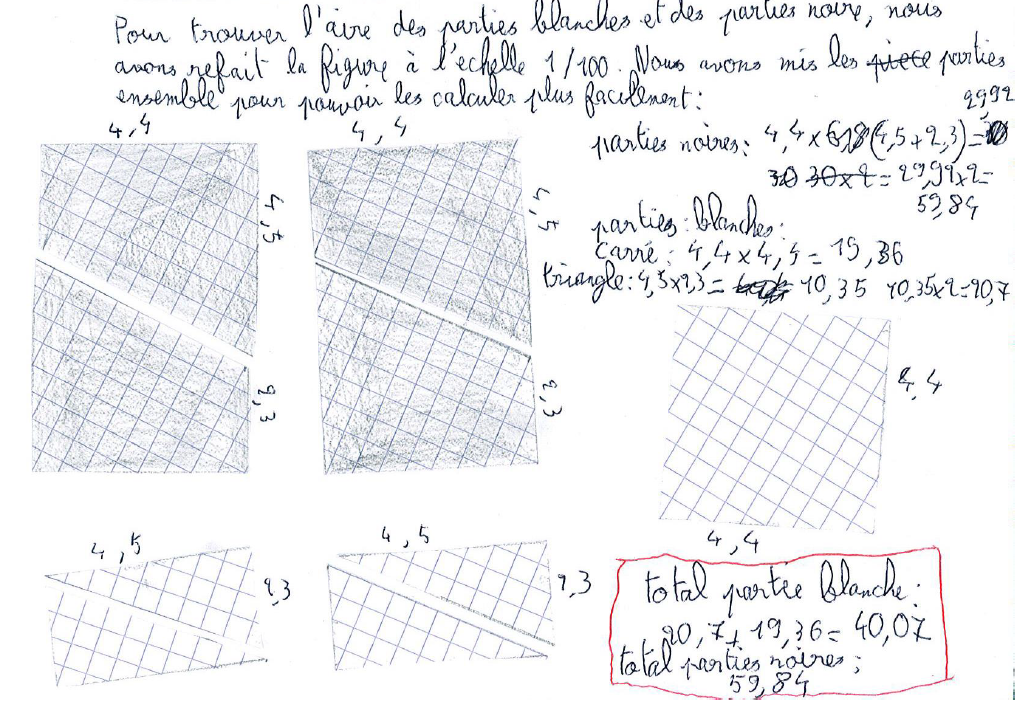 Pour trouver l'aire des parties blanches et des parties noire, nous
avons refait la figure à l'échelle 1/100. Nous avons mis les pièce parties
ensemble pour pouvoir les calculer plus facilement :
4,4
4,4
29,92
parties noires : 4,4 x 6,8 (4,5 + 2,3) =
30 30 x 2 = 29,92 x 2 =
59,84
4,5
4,5
parties blanches :
Carré : 4,4 x 4,4 = 19,36
triangle : 4,5 x 2,3 = 10,35 10,35 x 2 = 20,7
2,3
2,3
4,4
4,4
4,5
2,3
4,5
2,3
total partie blanche :
20,7 + 19,36 = 40,07
total parties noires :
59,84